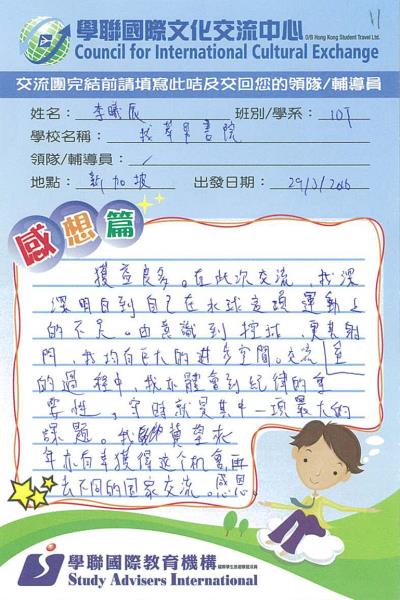 11
學聯國際文化交流中心 O/B Hong Kong Student Travel Ltd.
Council for International Cultural Exchange
交流團完結前請填寫此咭及交回您的領隊/輔導員
姓名：李曦辰 班別/學系：10T
學校名稱：書院
領隊/輔導員：/
地點：新加坡 出發日期：29/3/2016
感想篇
獲益良多。在此次交流，我深
深明白到自己在水球這項運動上
的不足。由意識到控球，更甚射
門，我均有巨大的進步空間。交流
的過程中，我亦體會到紀律的重
要性，守時就是其中一項最大的
課題。我冀望來
年亦有幸獲得這个機會再
去不同的國家交流。感恩。
學聯國際教育機構
Study Advisers International